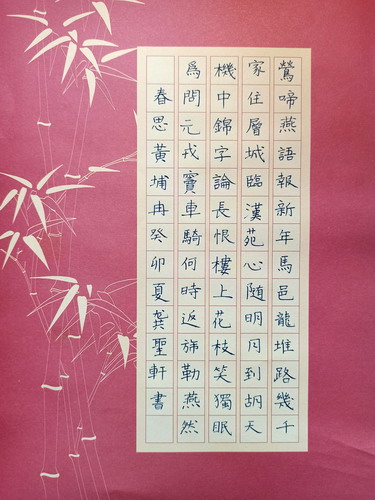 鶯啼燕語報新年馬邑龍堆路幾千
家住層城臨漢苑心随明月到胡天
機中錦字論長恨樓上花枝笑獨眠
爲問元戎竇車騎何時返旆勒燕然
春思黃埔冉癸卯夏龔聖軒書